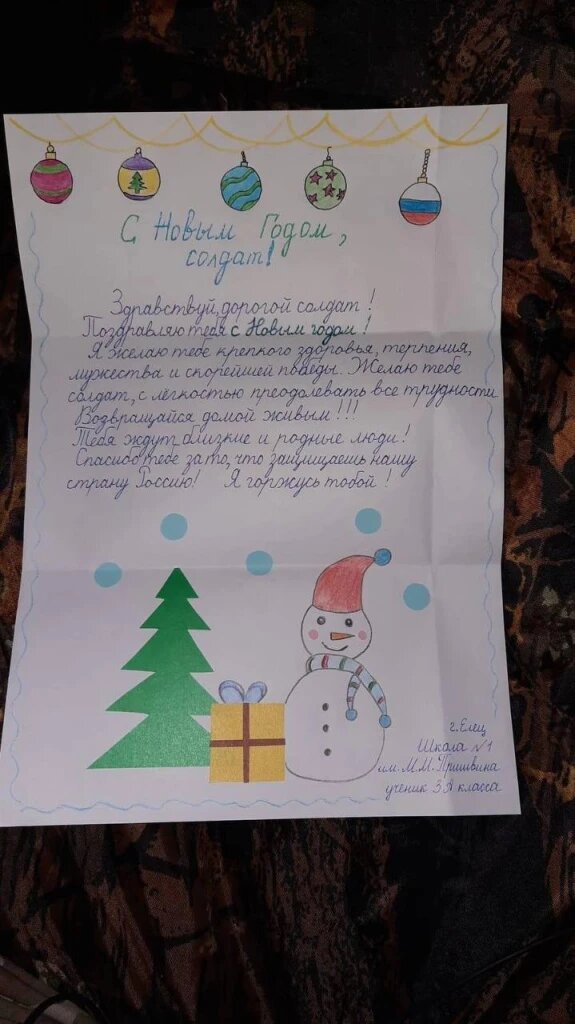 С Новым Годом,
солдат!
Здравствуй, дорогой солдат!
Поздравляю тебя с Новым годом!
Я желаю тебе крепкого здоровья, терпения,
мужества и скорейшей победы. Желаю тебе
солдат, с лёгкостью преодолевать все трудности
Возвращайся домой живым!!!
Тебя ждут близкие и родные люди!
Спасибо тебе за то, что защищаешь нашу
страну Россию! Я горжусь тобой!
г. Елец
Школа №1
им. М.М. Пришвина
ученик 3 А класса